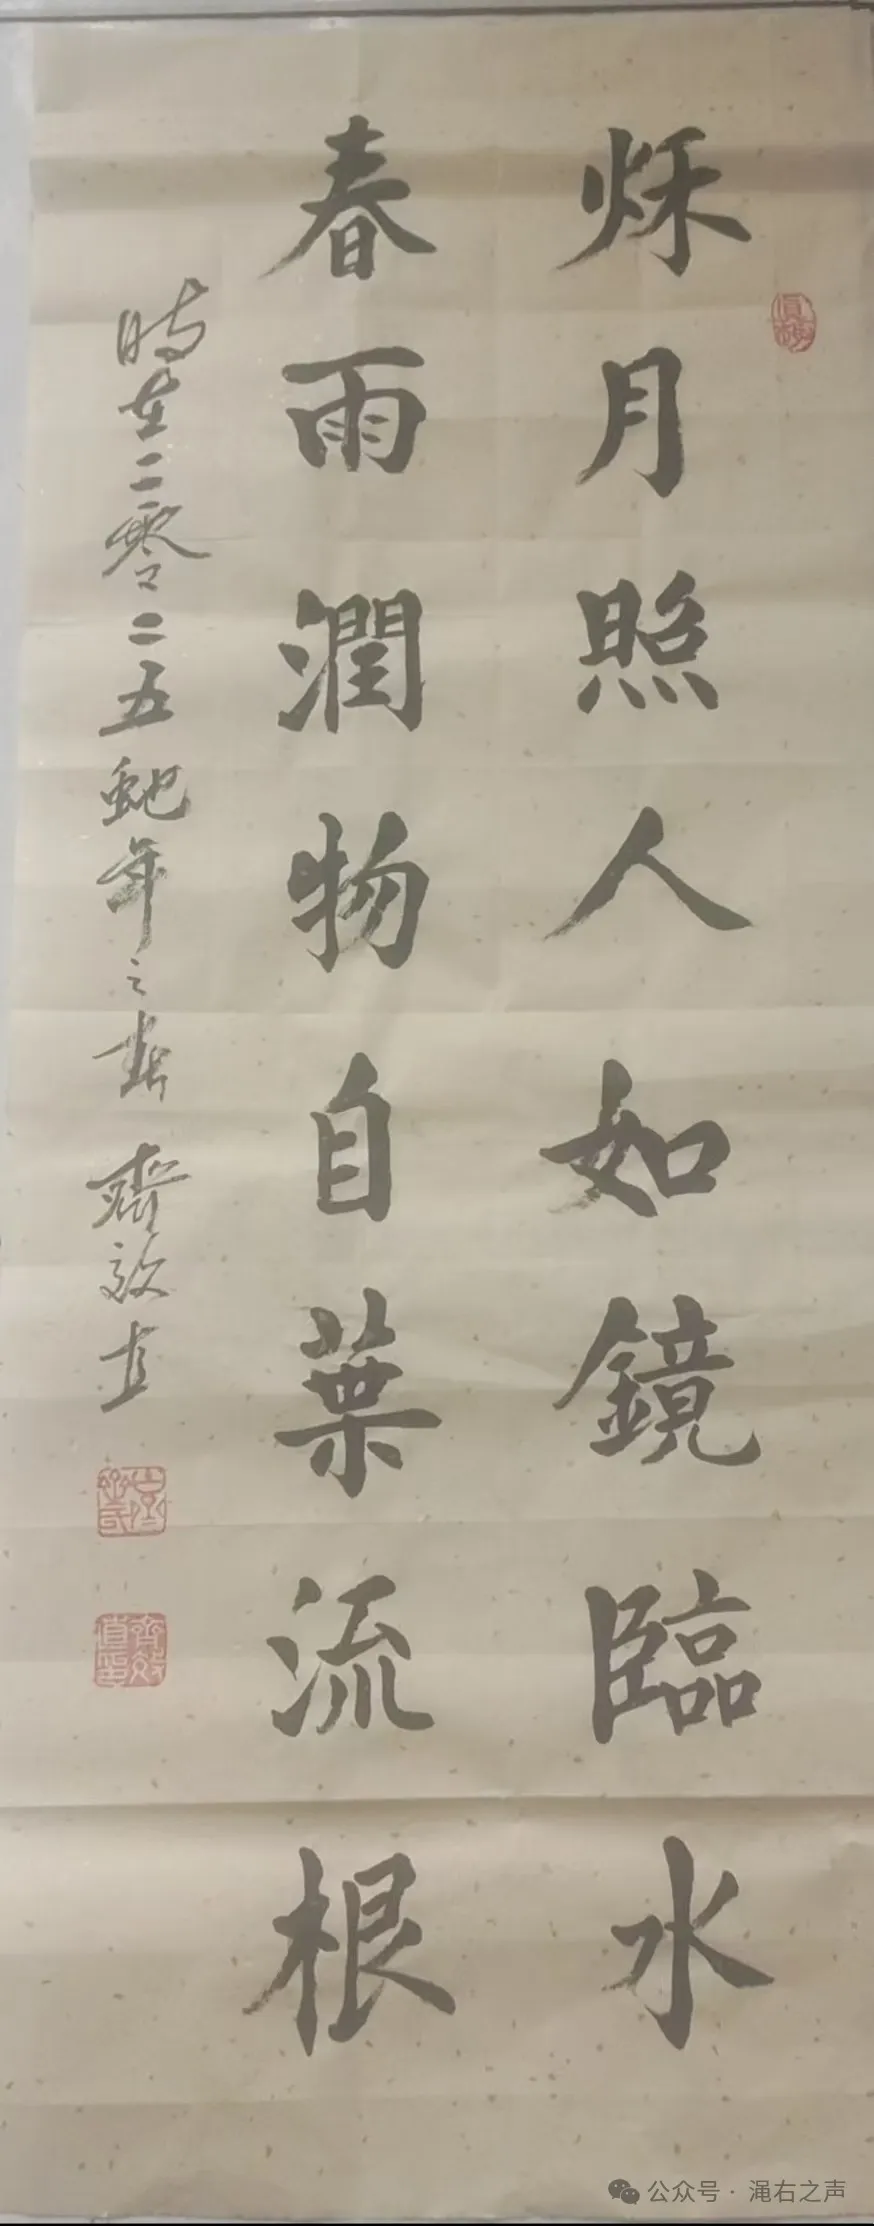 秌月照人如鏡臨水
春雨潤物自葉流根
時在二零二五蛇年之春 齊效直
公众号 · 渑右之声